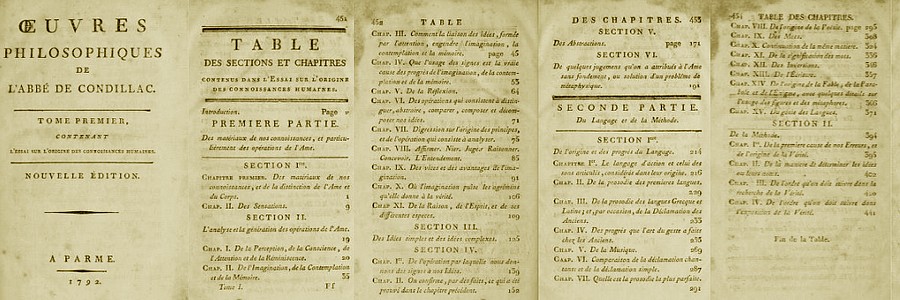 ŒUVRES
PHILOSOPHIQUES
DE
L'ABBÉ DE CONDILLAC.
TOME PREMIER,
CONTENANT
L'ESSAI SUR L'ORIGINE DES CONNOISSANCES HUMAINES.
NOUVELLE ÉDITION.
A PARME.
1792.
451
TABLE
DES SECTIONS ET CHAPITRES
CONTENUS DANS L'ESSAI SUR L'ORIGINE
DES CONNOISSANCES HUMAINES.
Introduction. Page
PREMIERE PARTIE.
Des matériaux de nos connoissances, et particu-
liérement des opérations de l'Ame.
SECTION Ire.
CHAPITRE PREMIER. Des matériaux de nos
connoissances, et de la distinction de l'Ame et
du Corps. 1
CHAP. II. Des Sensations. 9
SECTION II.
L'analyse et la génération des opérations de l'Ame.
19
CHAP. I. De la Perception, de la Conscience, de
l'Attention et de la Réminiscence. 20
CHAP. II. De l'Imagination, de la Contemplation
et de la Mémoire. 35
Tome I. Ff
452 TABLE
CHAP. III. Comment la liaison des idées, formée
par l'attention, engendre l'imagination, la
contemplation et la mémoire. page 45
CHAP. IV. Que l'usage des signes est la vraie
cause des progrès de l'imagination, de la contem-
plation et de la mémoire. 53
CHAP. V. De la Réflexion. 64
CHAP. VI. Des opérations qui consistent à distin-
guer, abstraire, comparer, composer et décom-
poser nos idées. 71
CHAP. VII. Digression sur l'origine des principes,
et de l'opération qui consiste à analyser. 76
CHAP. VIII. Affirmer. Nier. Juger. Raisonner.
Concevoir. L'Entendement. 85
CHAP. IX. Des vices et des avantages de l'ima-
gination. 91
CHAP. X. Où l'imagination puise les agrémens
qu'elle donne à la vérité. 106
CHAP. XI. De la Raison, de l'Esprit, et de ses
différentes especes. 109
SECTION III.
Des Idées simples et des idées complexes. 125
SECTION IV.
CHAP. Ire. De l'opération par laquelle nous don-
nons des signes à nos idées. 139
CHAP. II. On confirme, par des faits, ce qui a été
prouvé dans le chapitre précédent. 152
DES CHAPITRES. 453
SECTION V.
Des Abstractions. page 171
SECTION VI.
De quelques jugemens qu'on a attribués à l'Ame
sans fondement, ou solution d'un problême de
métaphysique. 191
SECONDE PARTIE.
Du Langage et de la Méthode.
SECTION Ire.
De l'origine et des progrès du Langage. 214
CHAPITRE Ier. Le langage d'action et celui des
sons articulés, considérés dans leur origine. 216
CHAP. II. De la prosodie des premieres langues,
229
CHAP. III. De la prosodie des langues Grecque et
Latine; et, par occasion, de la Déclamation des
Anciens. 235
CHAP. IV. Des progrès que l'art du geste a faits
chez les Anciens. 255
CHAP. V. De la Musique. 269
CHAP. VI. Comparaison de la déclamation chan-
tante et de la déclamation simple. 287
CHAP. VII. Quelle est la prosodie la plus parfaite.
291
454 TABLE DES CHAPITRES.
CHAP. VIII. De l'origine de la Poésie. page 295
CHAP. IX. Des Mots.
CHAP. X. Continuation de la même matiere.
CHAP. XI. De la signification des mots.
CHAP. XII. Des Inversions.
CHAP. XIII. De l'Ecriture. 357
CHAP. XIV. De l'origine de la Fable, de la Para-
bole et de l'Enigme, avec quelques détails sur
l'usage des figures et des métaphores. 366
CHAP. XV. Du génie des Langues. 371
SECTION II.
De la Méthode. 394
CHAP. Ier. De la premiere cause de nos Erreurs, et
de l'origine de la Vérité. 395
CHAP. II. De la maniere de déterminer les idées
ou leurs noms.
CHAP. III. De l'ordre qu'on doit suivre dans la
recherche de la Vérité. 420
CHAP. IV. De l'ordre qu'on doit suivre dans
l'exposition de la Vérité. 441
Fin de la Table.